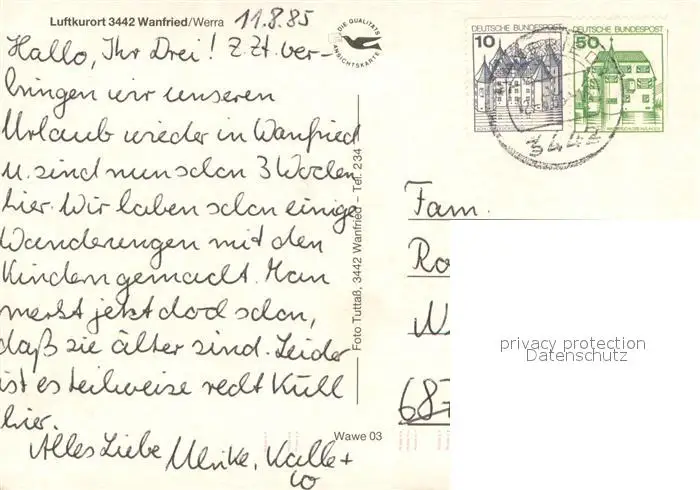 Luftkurort 3442 Wanfried/Werra 11.8.85
DIE QUALITÄTS
ANSICHTSKARTE
Hallo, Ihr Drei! Z. Zt. ver-
bringen wir unseren
Urlaub wieder in Wanfried
u. sind nun schon 3 Wochen
hier. Wir haben schon einige
Wanderungen mit den
Kindern gemacht. Man
merkt jetzt doch schon,
daß sie älter sind. Leider
ist es teilweise recht kühl
hier.
Alles Liebe Ulrike, Kalle +
Co
Foto Tuttaß, 3442 Wanfried – Tel. 234
Wawe 03
DEUTSCHE BUNDESPOST
10
DEUTSCHE BUNDESPOST
50
3442
Fam.
Ro
N
687
privacy protection
Datenschutz